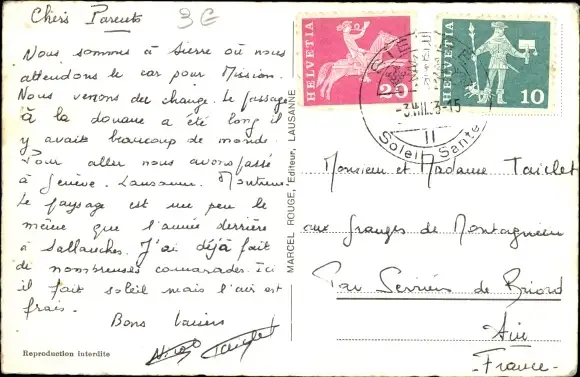 Chers Parents
3G
Nous sommes à Sierre où nous
attendons le car pour Mission.
Nous venons du change. Le passage
à la douane a été long il
y avait beaucoup de monde.
Pour aller nous avons passé
à Genève. Lausanne. Montreux
Le paysage est un peu le
même que l'année dernière
à Sallanches. J'ai déjà fait
de nombreuses camarades. Ici
il fait soleil mais l'air est
frais.
Bons baisers
Reproduction interdite
MARCEL ROUGE, Editeur, LAUSANNE
HELVETIA
20
HELVETIA
10
SIERRE
11
Soleil Santé
Monsieur et Madame Taiclet
aux granges de Montagnieu
Par Serrières de Briord
Ain
-France-